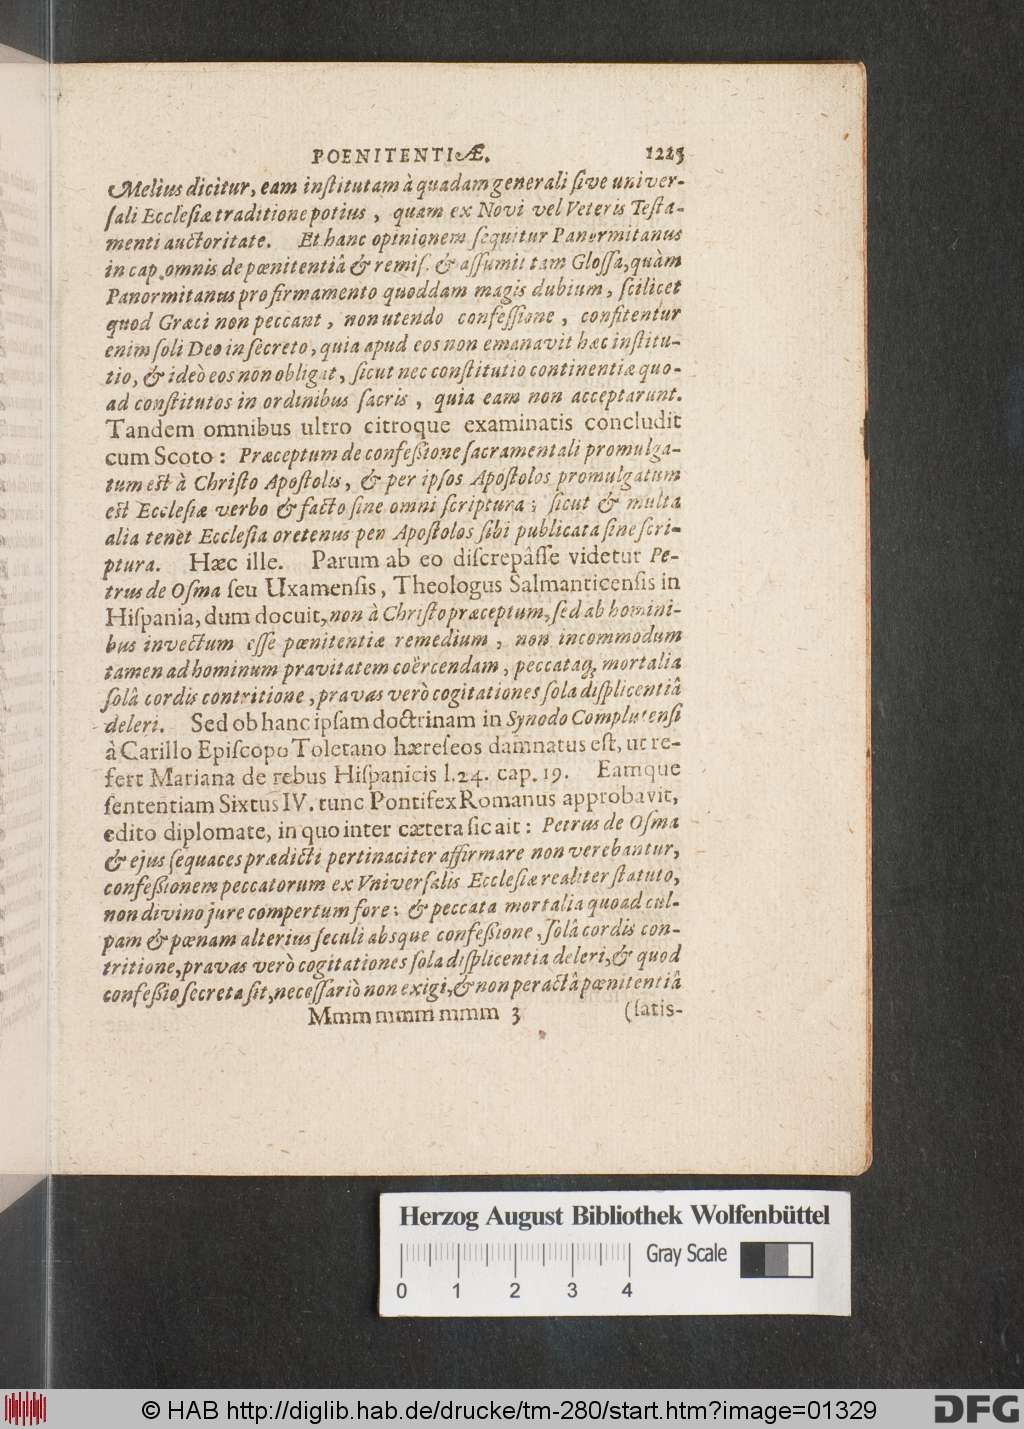 POENITENTIÆ. 1225
Melius dicitur, eam inſtitutam à quadam generali ſive univer-
ſali Eccleſiæ traditione potius, quam ex Novi vel Veteris Teſta-
menti auctoritate. Et hanc opinionem ſequitur Panormitanus
in cap. omnis de pœnitentiâ & remiſ. & aſſumit tam Gloſſa, quàm
Panormitanus pro firmamento quoddam magis dubium, ſcilicet
quod Græci non peccant, non utendo confeſſione, confitentur
enim ſoli Deo in ſecreto, quia apud eos non emanavit hæc inſtitu-
tio, & ideò eos non obligat, ſicut nec conſtitutio continentiæ quo-
ad conſtitutos in ordinibus ſacris, quia eam non acceptarunt.
Tandem omnibus ultro citroque examinatis concludit
cum Scoto: Præceptum de confeßione ſacramentali promulga-
tum eſt à Chriſto Apoſtolis, & per ipſos Apoſtolos promulgatum
eſt Eccleſiæ verbo & facto ſine omni ſcriptura; ſicut & multa
alia tenet Eccleſia oretenus per Apoſtolos ſibi publicata ſine ſcri-
ptura. Hæc ille. Parum ab eo diſcrepâſſe videtur Pe-
trus de Oſma ſeu Uxamenſis, Theologus Salmanticenſis in
Hiſpania, dum docuit, non à Chriſto præceptum, ſed ab homini-
bus invectum eſſe pœnitentiæ remedium, non incommodum
tamen ad hominum pravitatem coërcendam, peccataq; mortalia
ſolâ cordis contritione, pravas verò cogitationes ſola diſplicentiâ
deleri. Sed ob hanc ipſam doctrinam in Synodo Complutenſi
à Carillo Epiſcopo Toletano hæreſeos damnatus eſt, ut re-
fert Mariana de rebus Hiſpanicis l. 24. cap. 19. Eamque
ſententiam Sixtus IV. tunc Pontifex Romanus approbavit,
edito diplomate, in quo inter cætera ſic ait: Petrus de Oſma
& ejus ſequaces prædicti pertinaciter affirmare non verebantur,
confeßionem peccatorum ex Vniverſalis Eccleſiæ realiter ſtatuto,
non divino jure compertum fore: & peccata mortalia quoad cul-
pam & pœnam alterius ſeculi absque confeßione, ſolâ cordis con-
tritione, pravas verò cogitationes ſola diſplicentia deleri, & quod
confeßio ſecreta ſit, neceſſariò non exigi, & non peractâ pœnitentiâ
Mmm mmm mmm 3 (ſatis-
Herzog August Bibliothek Wolfenbüttel
Gray Scale
0 1 2 3 4
© HAB http://diglib.hab.de/drucke/tm-280/start.htm?image=01329
DFG